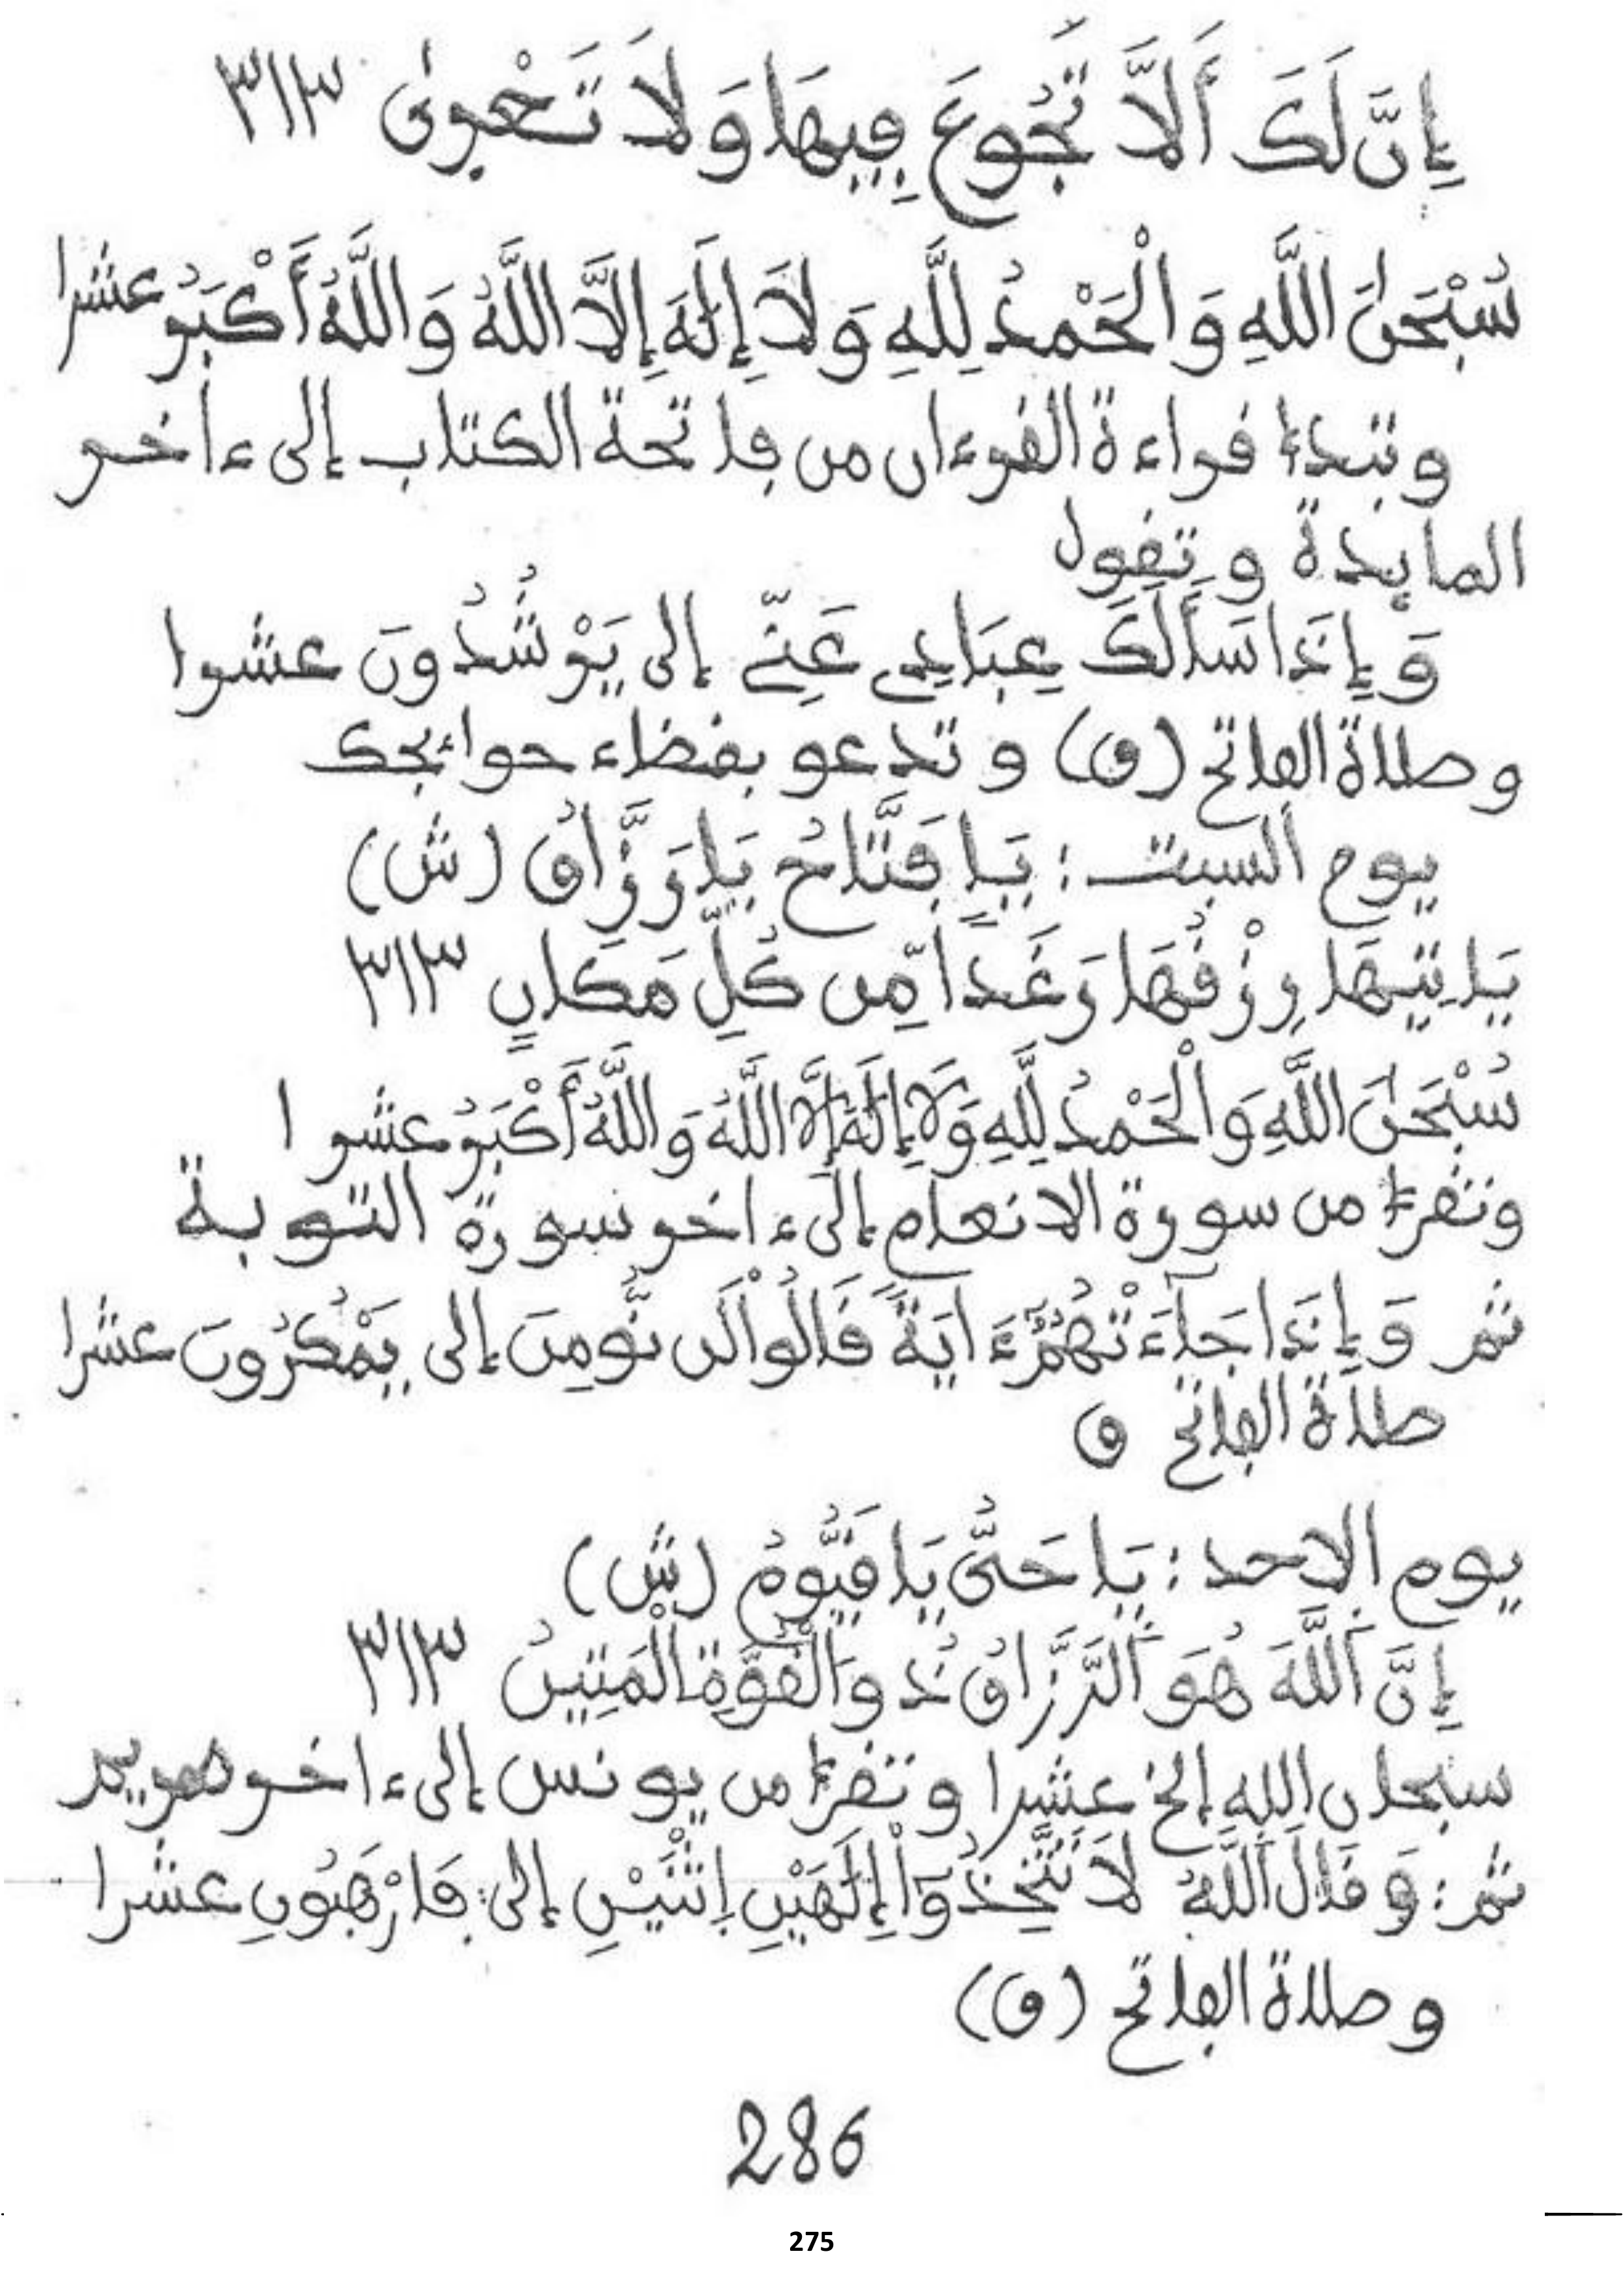 إِنَّ لَكَ أَلَّا تَجُوعَ فِيهَا وَلَا تَعْرىٰ ٣١٣
سُبْحَٰنَ اللَّهِ وَالْحَمْدُ لِلَّهِ وَلَا إِلَٰهَ إِلَّا اللَّهُ وَاللَّهُ أَكْبَرُ عشرا
وتبدء قراءة القرءان من فاتحة الكتاب إلى ءاخر
المائدة وتقول
وَإِذَا سَأَلَكَ عِبَادِي عَنِّي إلى يَرْشُدُونَ عشرا
وصلاة الفاتح (ق) وتدعو بقضاء حوائجك
يوم السبت : يَا فَتَّاحُ يَا رَزَّاقُ (ش)
يَاتِيهَا رِزْقُهَا رَغَدًا مِّن كُلِّ مَكَانٍ ٣١٣
سُبْحَٰنَ اللَّهِ وَالْحَمْدُ لِلَّهِ وَلَا إِلَٰهَ إِلَّا اللَّهُ وَاللَّهُ أَكْبَرُ عشرا
وتقرأ من سورة الانعام إلى ءاخر سورة التوبة
ثم وَإِذَا جَآءَتْهُمُۥٓ ءَايَةٌ قَالُواْ لَن نُّومِنَ إلى يَمْكُرُونَ عشرا
صلاة الفاتح ق
يوم الاحد : يَا حَيُّ يَا قَيُّومُ (ش)
إِنَّ اللَّهَ هُوَ الرَّزَّاقُ ذُو الْقُوَّةِ الْمَتِينُ ٣١٣
سبحان الله إلخ عشرا وتقرأ من يونس إلى ءاخر مريم
ثم : وَقَالَ اللَّهُ لَا تَتَّخِذُوٓاْ إِلَٰهَيْنِ اِثْنَيْنِ إلى : فَارْهَبُونِ عشرا
وصلاة الفاتح (ق)
286
275